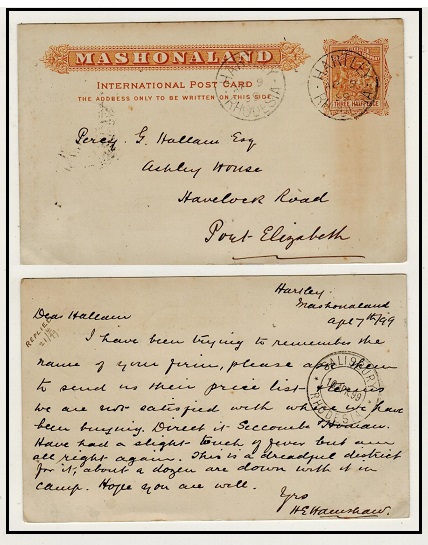 MASHONALAND
INTERNATIONAL POST CARD
THE ADDRESS ONLY TO BE WRITTEN ON THIS SIDE
THREE HALFPENCE
HARTLEY
RHODESIA
HARTLEY
Percy G. Hallam Esq
Ashley House
Havelock Road
Port Elizabeth
Hartley
Mashonaland
Apl 7th/99
REPLIED
Dear Hallam
I have been trying to remember the
name of your firm, please ask them
to send us their price list & terms
we are not satisfied with what we have
been buying. Direct it Seccombe &
Have had a slight touch of fever but am
all right again. This is a dreadful district
for it; about a dozen are down with it in
camp. Hope you are well.
Yrs
SALISBURY
RHODESIA